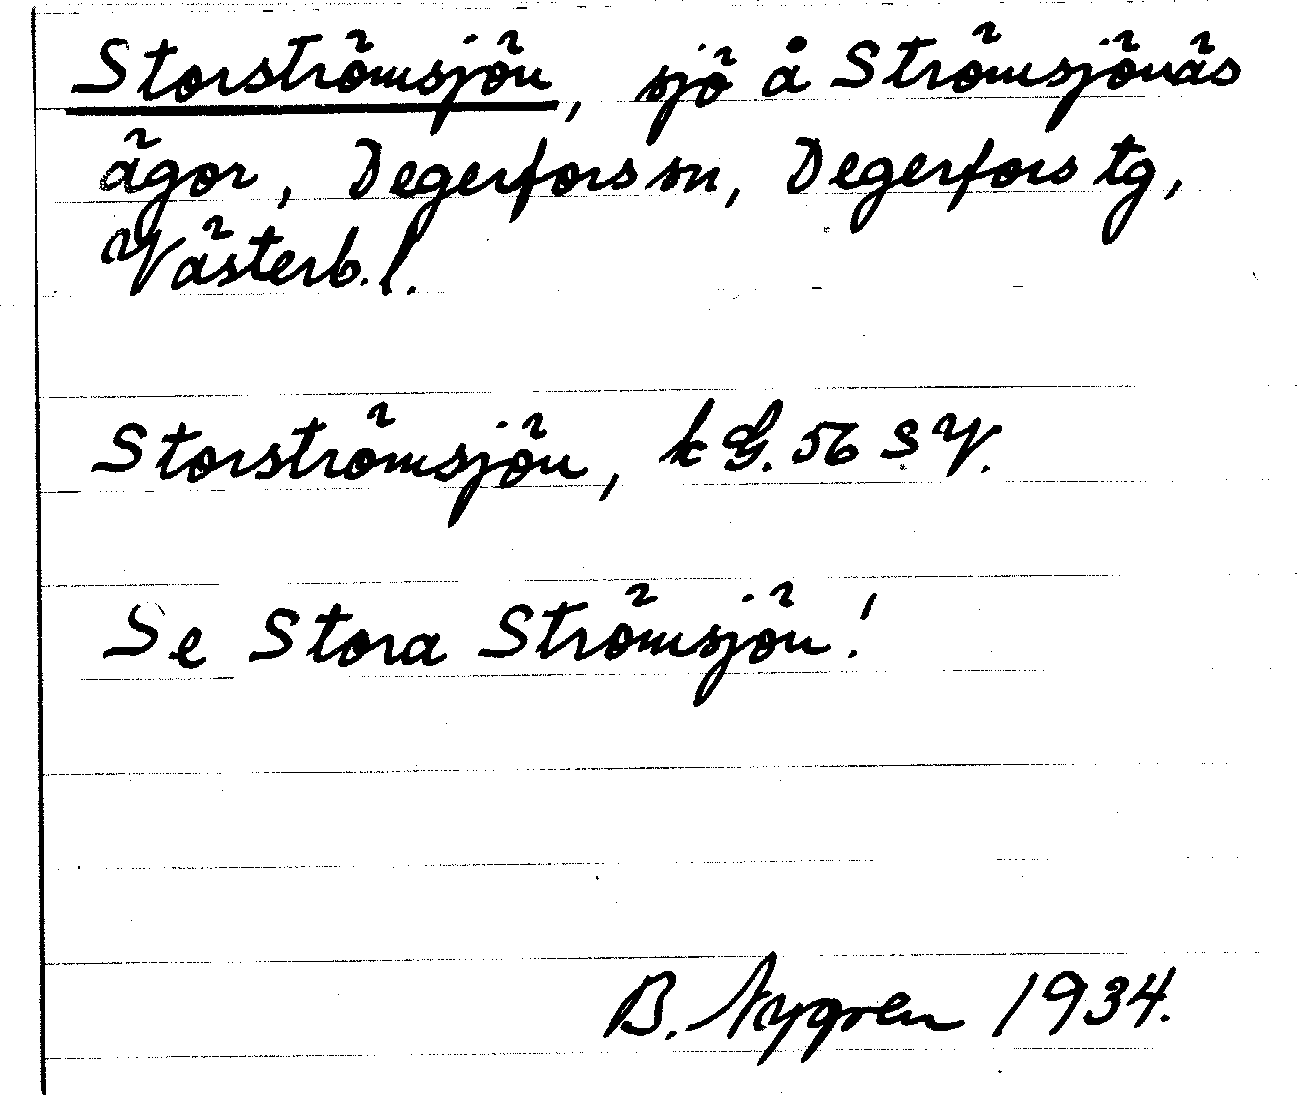 Storströmsjön, sjö å Strömsjönäs
ägor, Degerfors sn, Degerfors tg,
Västerb. l.
Storströmsjön, k G. 56 S V.
Se Stora Strömsjön!
B. Nygren 1934.